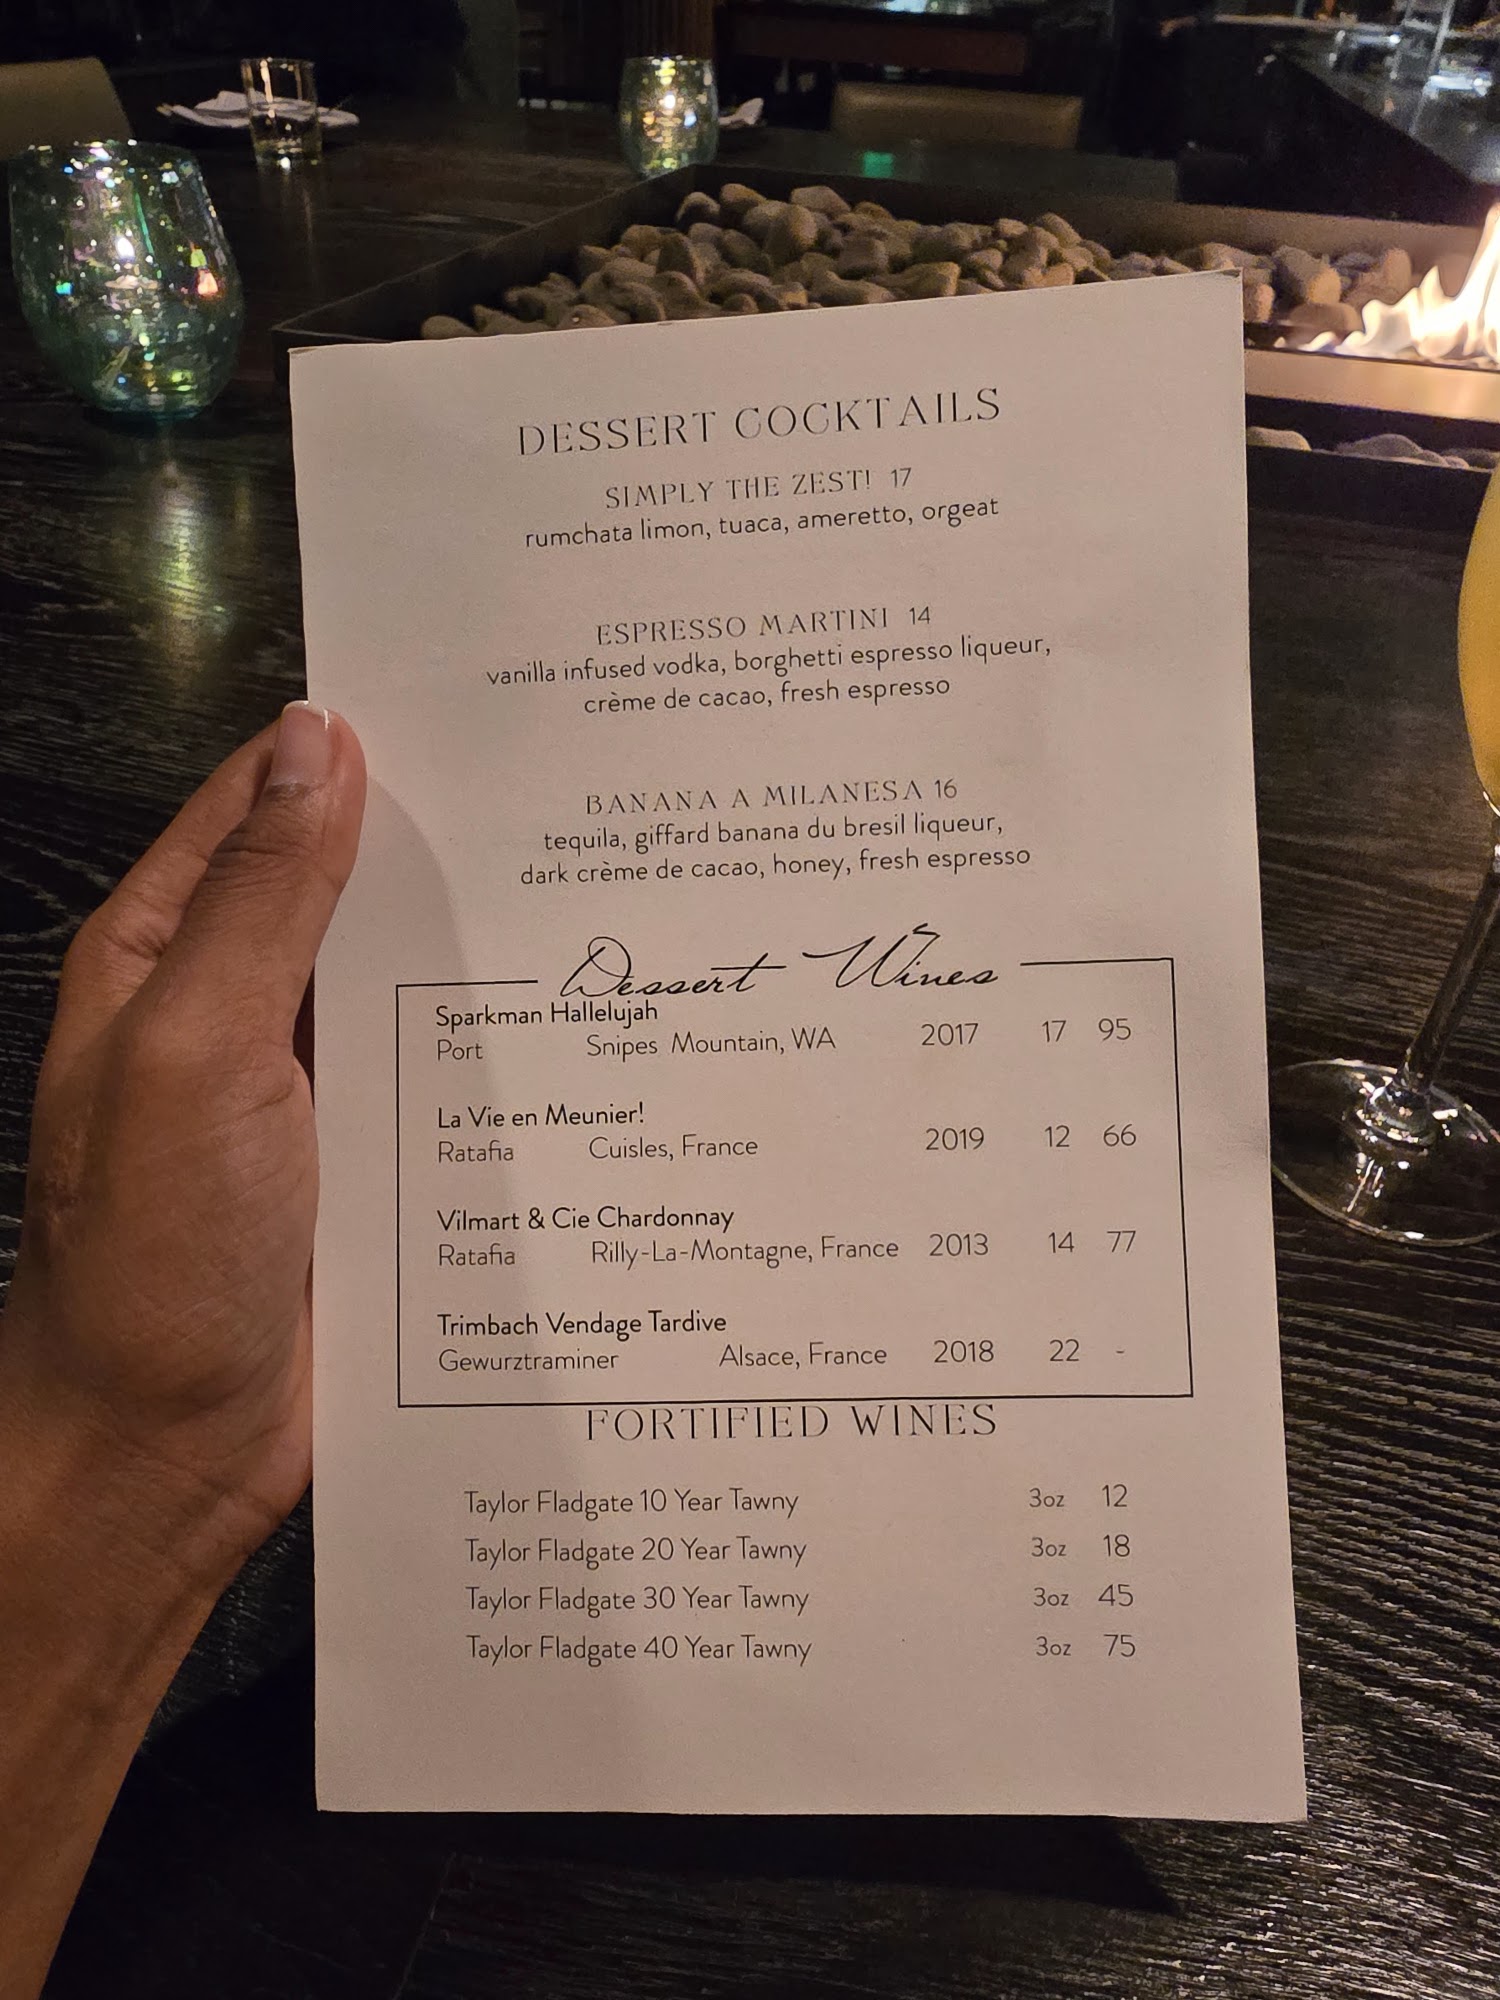 DESSERT COCKTAILS
SIMPLY THE ZEST! 17
rumchata limon, tuaca, ameretto, orgeat
ESPRESSO MARTINI 14
vanilla infused vodka, borghetti espresso liqueur,
crème de cacao, fresh espresso
BANANA A MILANESA 16
tequila, giffard banana du bresil liqueur,
dark crème de cacao, honey, fresh espresso
Dessert Wines
Sparkman Hallelujah
Port Snipes Mountain, WA 2017 17 95
La Vie en Meunier!
Ratafia Cuisles, France 2019 12 66
Vilmart & Cie Chardonnay
Ratafia Rilly-La-Montagne, France 2013 14 77
Trimbach Vendage Tardive
Gewurztraminer Alsace, France 2018 22 -
FORTIFIED WINES
Taylor Fladgate 10 Year Tawny 3oz 12
Taylor Fladgate 20 Year Tawny 3oz 18
Taylor Fladgate 30 Year Tawny 3oz 45
Taylor Fladgate 40 Year Tawny 3oz 75